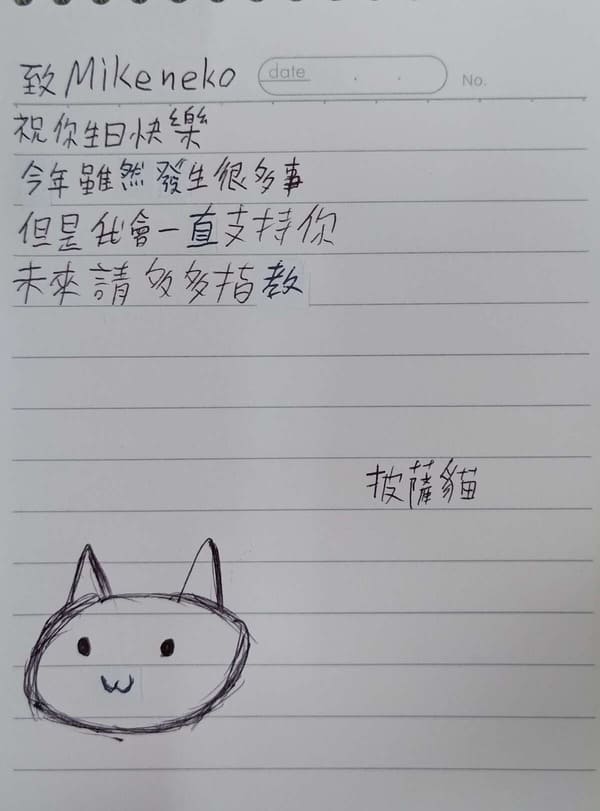 致 Mikeneko
date
No.
祝你生日快樂
今年雖然發生很多事
但是我會一直支持你
未來請多多指教
披薩貓